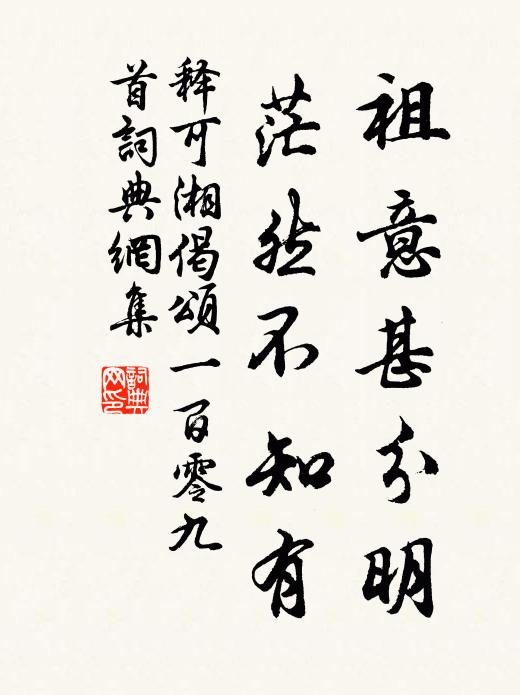 祖意甚分明
茫然不知有
释可湘偈頌一百零九
首詞典網集
詞典
网印